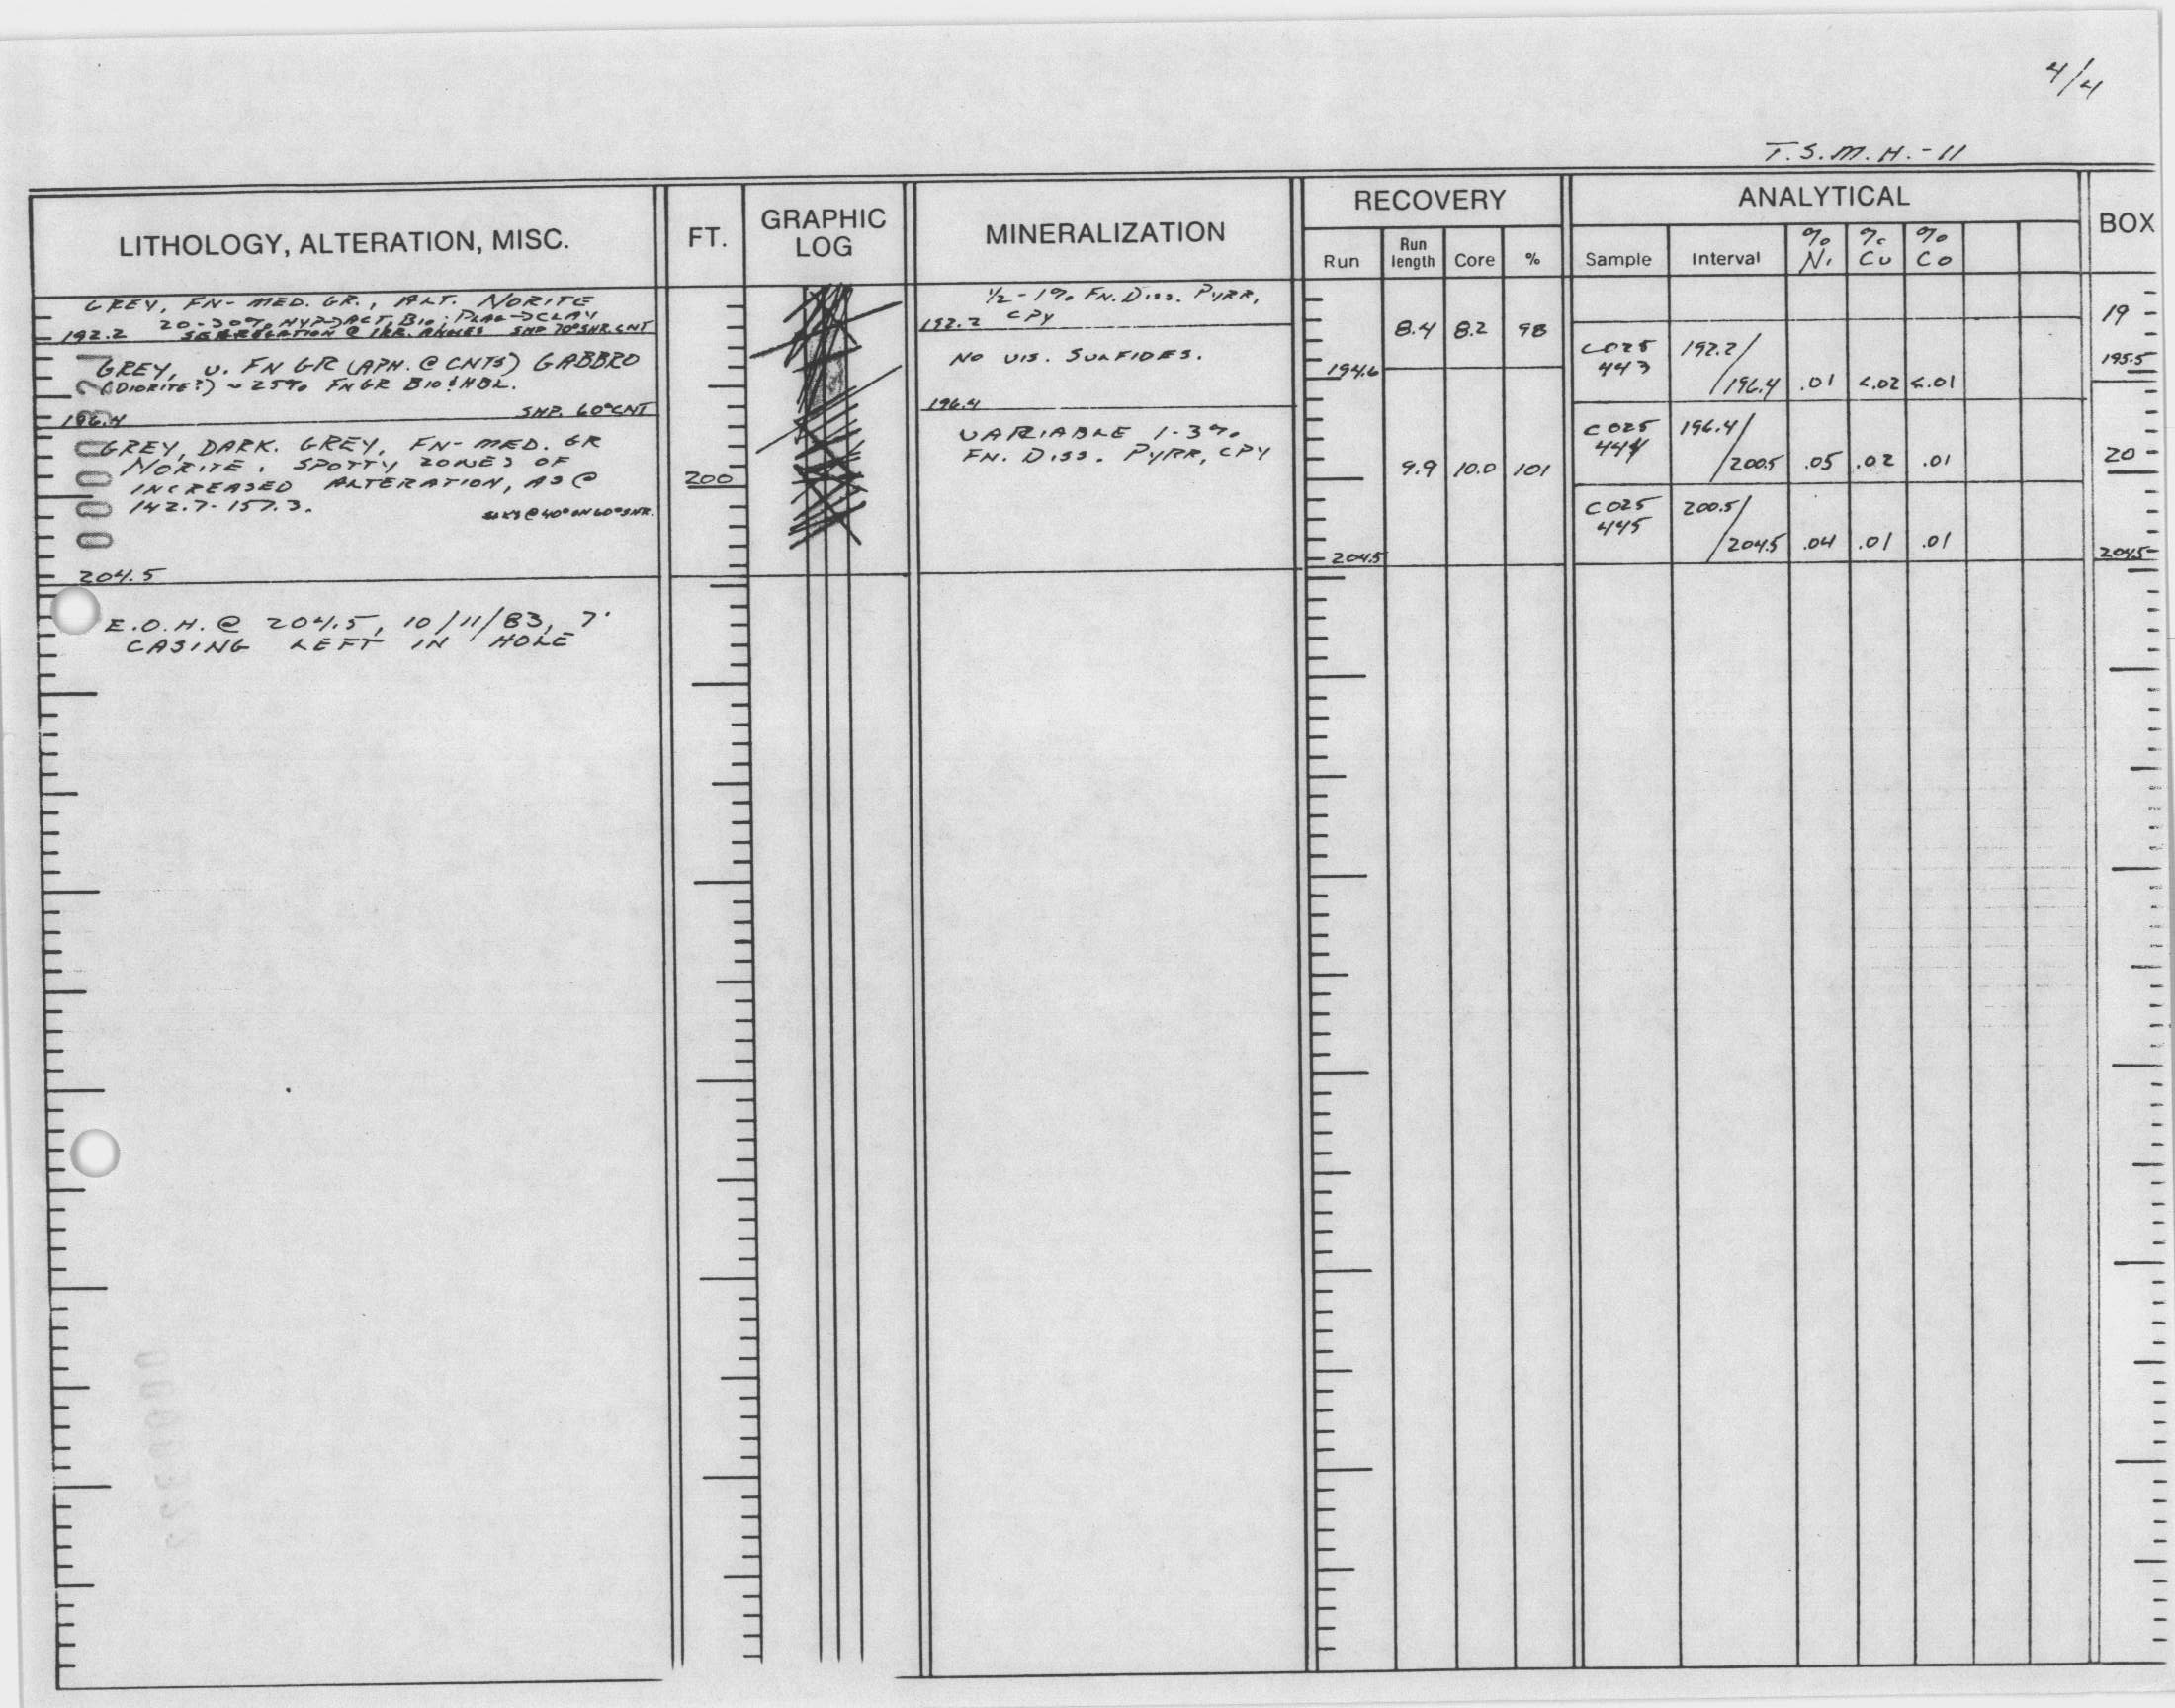 4/4
T.S.M.H.-11
LITHOLOGY, ALTERATION, MISC.
FT.
GRAPHIC
LOG
MINERALIZATION
RECOVERY
Run
Run
length
Core
%
ANALYTICAL
Sample
Interval
% Ni
% Cu
% Co
BOX
GREY, FN-MED. GR., ALT. NORITE
20-30% HYP→ACT, BIO; PLAG→CLAY
192.2 SEGREGATION @ IRR. ANGLES SHP 70° SHR. CNT
GREY, V. FN GR (APH. @ CNTS) GABBRO
(DIORITE?) ~25% FN GR BIO & HBL.
196.4 SHP. 60° CNT
GREY, DARK. GREY, FN-MED. GR
NORITE. SPOTTY ZONES OF
INCREASED ALTERATION, AS @
142.7-157.3.
204.5
E.O.H. @ 204.5, 10/11/83, 7'
CASING LEFT IN HOLE
200
1/2-1% FN. DISS. PYRR,
192.2 CPY
NO VIS. SULFIDES.
196.4
VARIABLE 1-3%
FN. DISS. PYRR, CPY
8.4 8.2 98
194.6
9.9 10.0 101
204.5
C025 192.2/
443 /196.4 .01 <.02 <.01
C025 196.4/
444 /200.5 .05 .02 .01
C025 200.5/
445 /204.5 .04 .01 .01
19
195.5
20
204.5